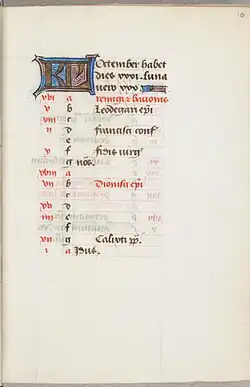 KL October habet
dies xxxi. luna
vero xxx.
xvi a remigii & bavonis
v b Leodegarii epi
xiii c
ii d Francisci conf
e
x f Fidis virg
g nōs.
xviii a
vii b Dionisii epi
c
xv d
iiii e
f
xii g Calixti pp.
i a Idus.